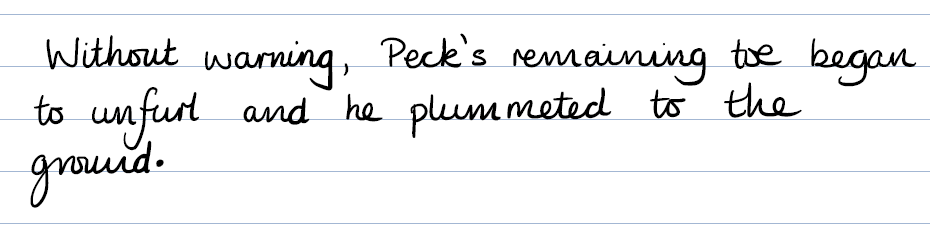 Without warning, Peck's remaining toe began
to unfurl and he plummeted to the
ground.